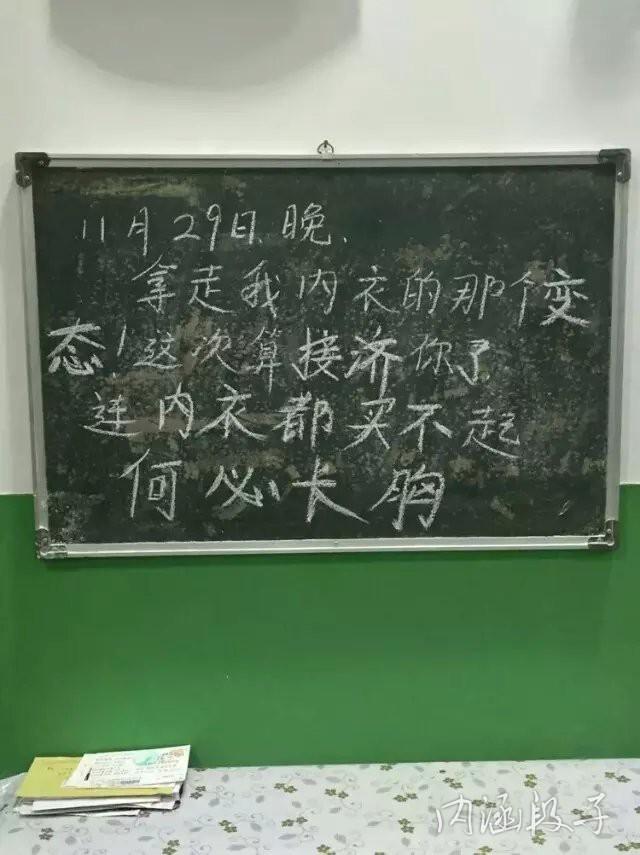 11月29日晚.
拿走我内衣的那个变
态!这次算接济你了
连内衣都买不起
何必长胸
内涵段子